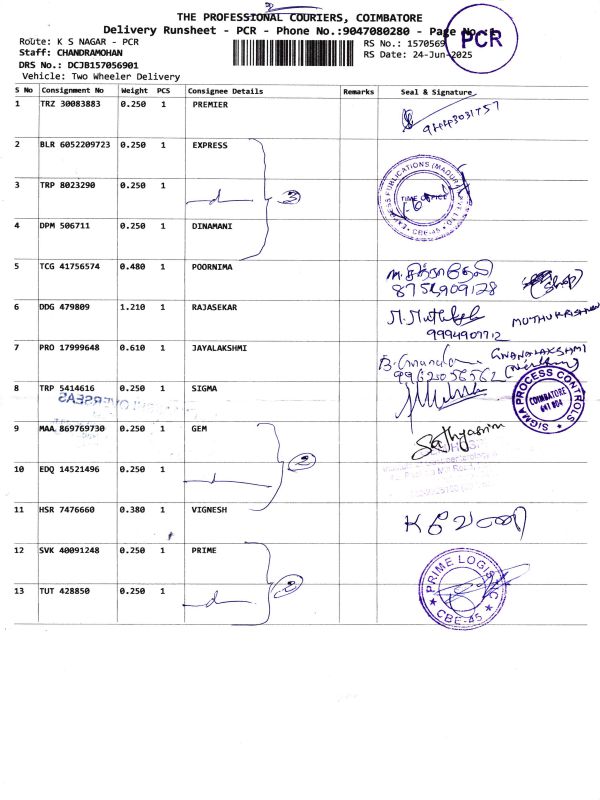 THE PROFESSIONAL COURIERS, COIMBATORE
Delivery Runsheet - PCR - Phone No.:9047080280 - Page No.:1
Route: K S NAGAR - PCR
RS No.: 1570569
PCR
Staff: CHANDRAMOHAN
RS Date: 24-Jun-2025
DRS No.: DCJB157056901
Vehicle: Two Wheeler Delivery
S No Consignment No Weight PCS Consignee Details Remarks Seal & Signature
1 TRZ 30083883 0.250 1 PREMIER
2 BLR 6052209723 0.250 1 EXPRESS
3 TRP 8023290 0.250 1 d 3
EXPRESS PUBLICATIONS (MADURAI) PVT LTD
TIME OFFICE
CBE-45
4 DPM 506711 0.250 1 DINAMANI
5 TCG 41756574 0.480 1 POORNIMA
6 DDG 479809 1.210 1 RAJASEKAR
MUTHUKRISHNAN
9994907712
7 PRO 17999648 0.610 1 JAYALAKSHMI
GNANALAKSHMI
8 TRP 5414616 0.250 1 SIGMA
SIGMA PROCESS CONTROLS
COIMBATORE
641 004
9 MAA 869769730 0.250 1 GEM
10 EDQ 14521496 0.250 1 d 2
11 HSR 7476660 0.380 1 VIGNESH
12 SVK 40091248 0.250 1 PRIME
PRIME LOGIS INC
CBE-45
13 TUT 428850 0.250 1 d 2